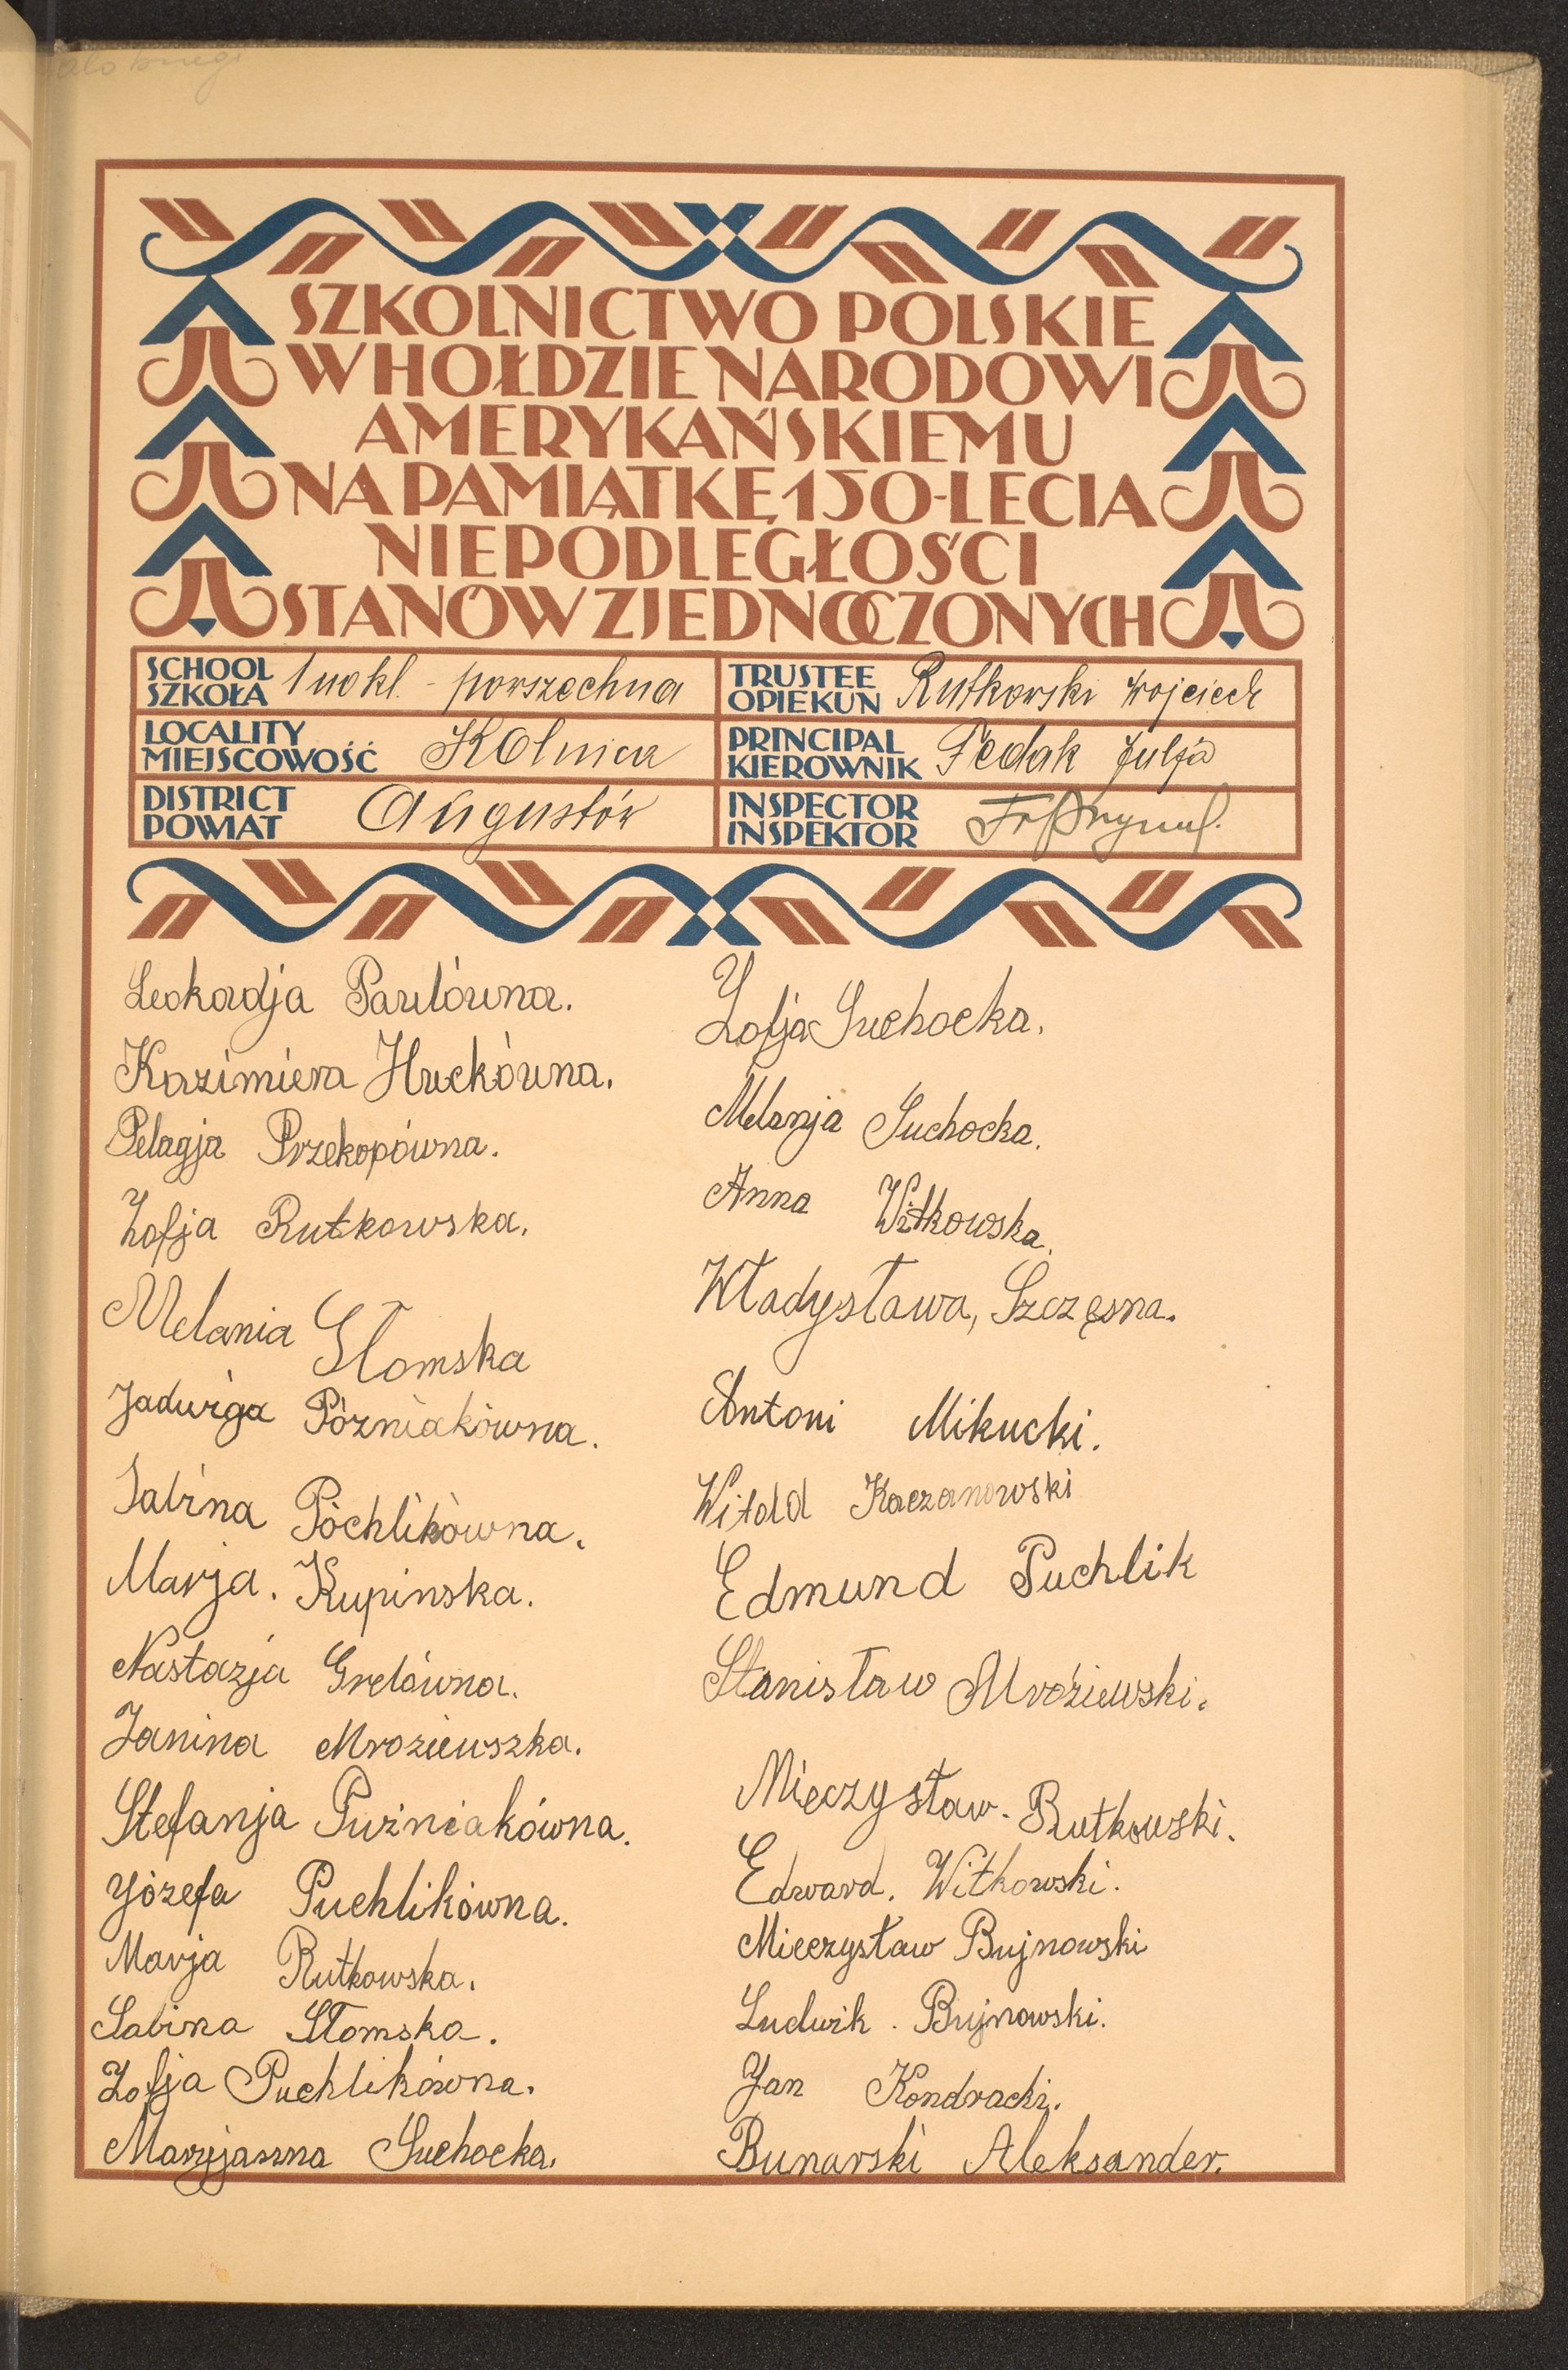 SZKOLNICTWO POLSKIE
W HOŁDZIE NARODOWI
AMERYKAŃSKIEMU
NA PAMIĄTKĘ 150-LECIA
NIEPODLEGŁOŚCI
STANÓW ZJEDNOCZONYCH
SCHOOL
SZKOŁA
1 no kl. - powszechna
TRUSTEE
OPIEKUN
Rutkowski Wojciech
LOCALITY
MIEJSCOWOŚĆ
Kolnica
PRINCIPAL
KIEROWNIK
Fedak Julja
DISTRICT
POWIAT
Augustów
INSPECTOR
INSPEKTOR
Leokadja Pawlówna.
Kazimiera Huckówna.
Pelagja Przekopówna.
Zofja Rutkowska.
Melania Słomska
Jadwiga Pózniakówna.
Sabina Póchlikówna.
Marja. Kupinska.
Nastazja Grelówna.
Janina Mroziewszka.
Stefanja Puźniakówna.
Józefa Puchlikówna.
Marja Rutkowska.
Sabina Słomska.
Zofja Puchlikówna.
Maryjanna Suchocka.
Zofja Suchocka.
Melanja Suchocka.
Anna Witkowska.
Władysława, Szczęsna.
Antoni Mikucki.
Witold Kaczanowski
Edmund Puchlik
Stanisław Mroźiewski.
Mieczysław. Rutkowski.
Edward. Witkowski.
Mieczysław Bujnowski
Ludwik. Bujnowski.
Jan Kondracki.
Bunarski Aleksander.